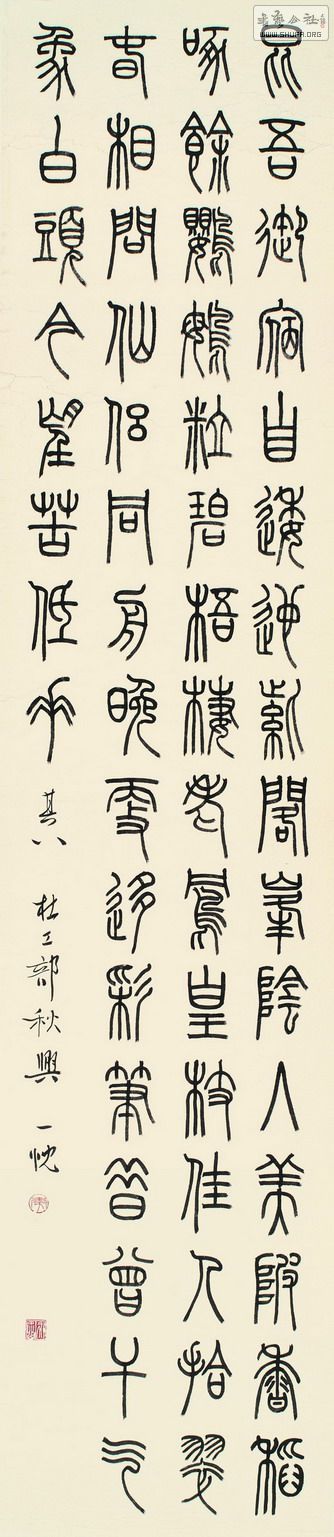 昆吾御宿自逶迤紫閣峯陰入美陂香稻
啄餘鸚䳇粒碧梧棲老鳳皇枝佳人拾翠
春相問仙侶同舟晚更移彩筆昔曾干气
象白頭今望苦低垂 其八 杜工部秋興 一忱
书艺公社
WWW.SHUFA.ORG